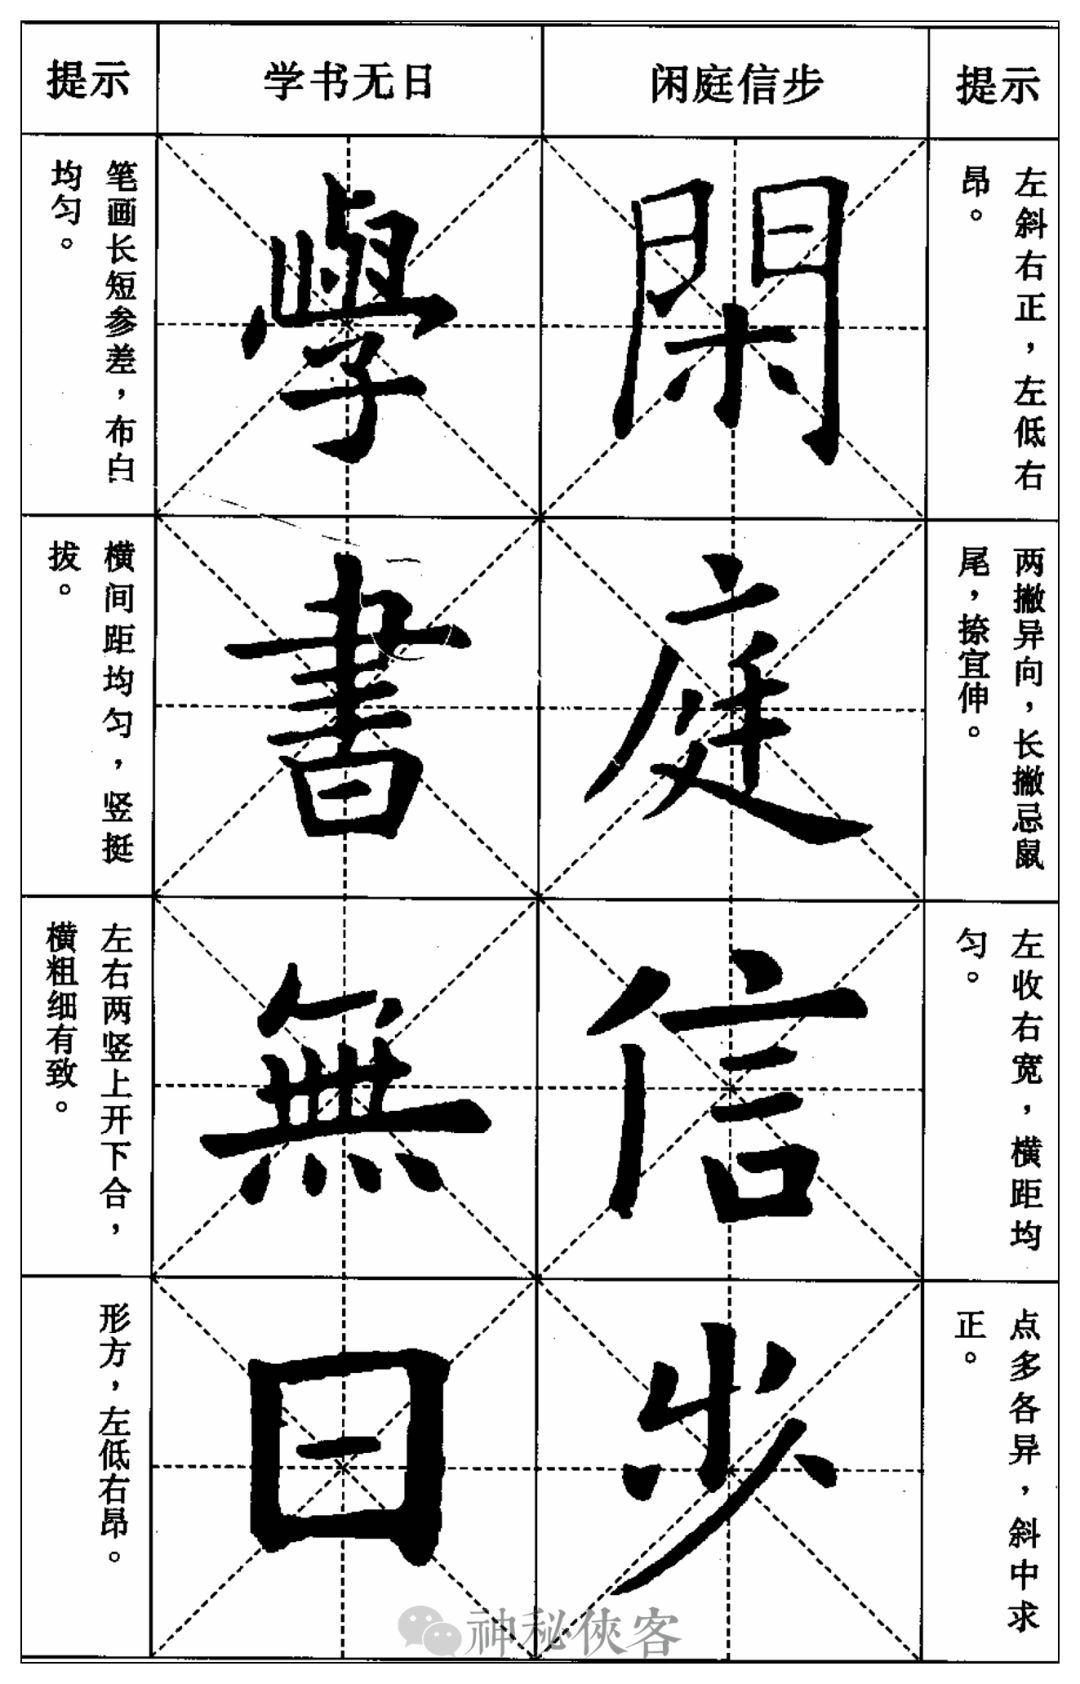 提示
闲庭信步
学书无日
提示
左斜右正，左低右
昂。
閑
學
笔画长短参差，布白
均匀。
两撇异向，长撇忌鼠
尾，捺宜伸。
庭
書
横间距均匀，竖挺
拔。
左收右宽，横距均
匀。
信
無
左右两竖上开下合，
横粗细有致。
点多各异，斜中求
正。
步
日
形方，左低右昂。
神秘俠客